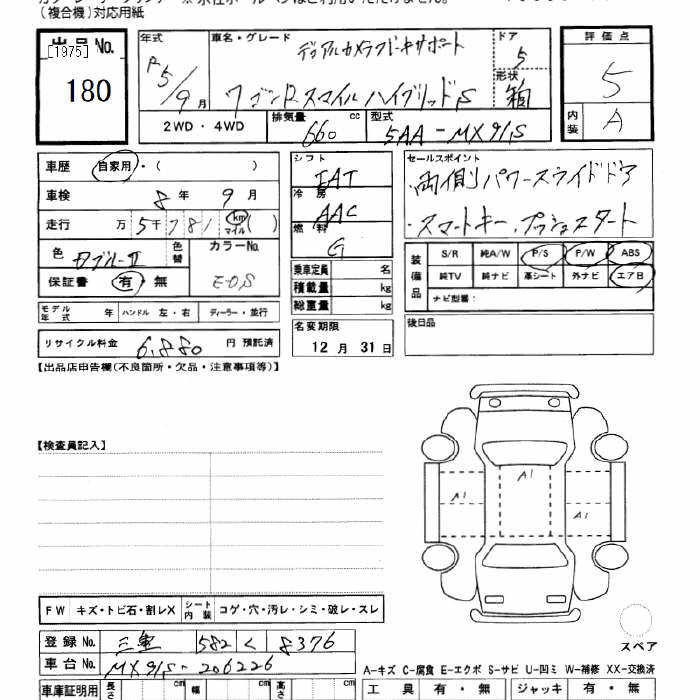 (複合機)対応用紙
出品No.
[1975]
180
年式 R5/9月
車名・グレード デュアルカメラブレーキサポート
ワゴンRスマイル ハイブリッドS
ドア 5
形状 箱
2WD・4WD
排気量 660 cc
型式 5AA-MX91S
評価点 5
内装 A
車歴 自家用・( )
車検 8年 9月
走行 万 5千781 km マイル ( )
色 色替
カラーNo.
保証書 有・無
モデル年式 年 ハンドル 左・右 ディーラー・並行
リサイクル料金 6,880 円 預託済
シフト
冷房 AAC
燃料 G
乗車定員 名
積載量 kg
総重量 kg
名変期限
12月 31日
セールスポイント
両側パワースライドドア
スマートキー、プッシュスタート
装備品 S/R 純A/W P/S P/W ABS
純TV 純ナビ 革シート 外ナビ エアB
ナビ型番:
後日品
【出品店申告欄(不良箇所・欠品・注意事項等)】
【検査員記入】
A1
A1
A1
スペア
FW キズ・トビ石・割レX シート内装 コゲ・穴・汚レ・シミ・破レ・スレ
登録No. 582 く 8376
車台No. MX91S-206226
A-キズ C-腐食 E-エクボ S-サビ U-凹ミ W-補修 XX-交換済
車庫証明用 長さ cm 幅 cm 高さ cm
工具 有・無 ジャッキ 有・無